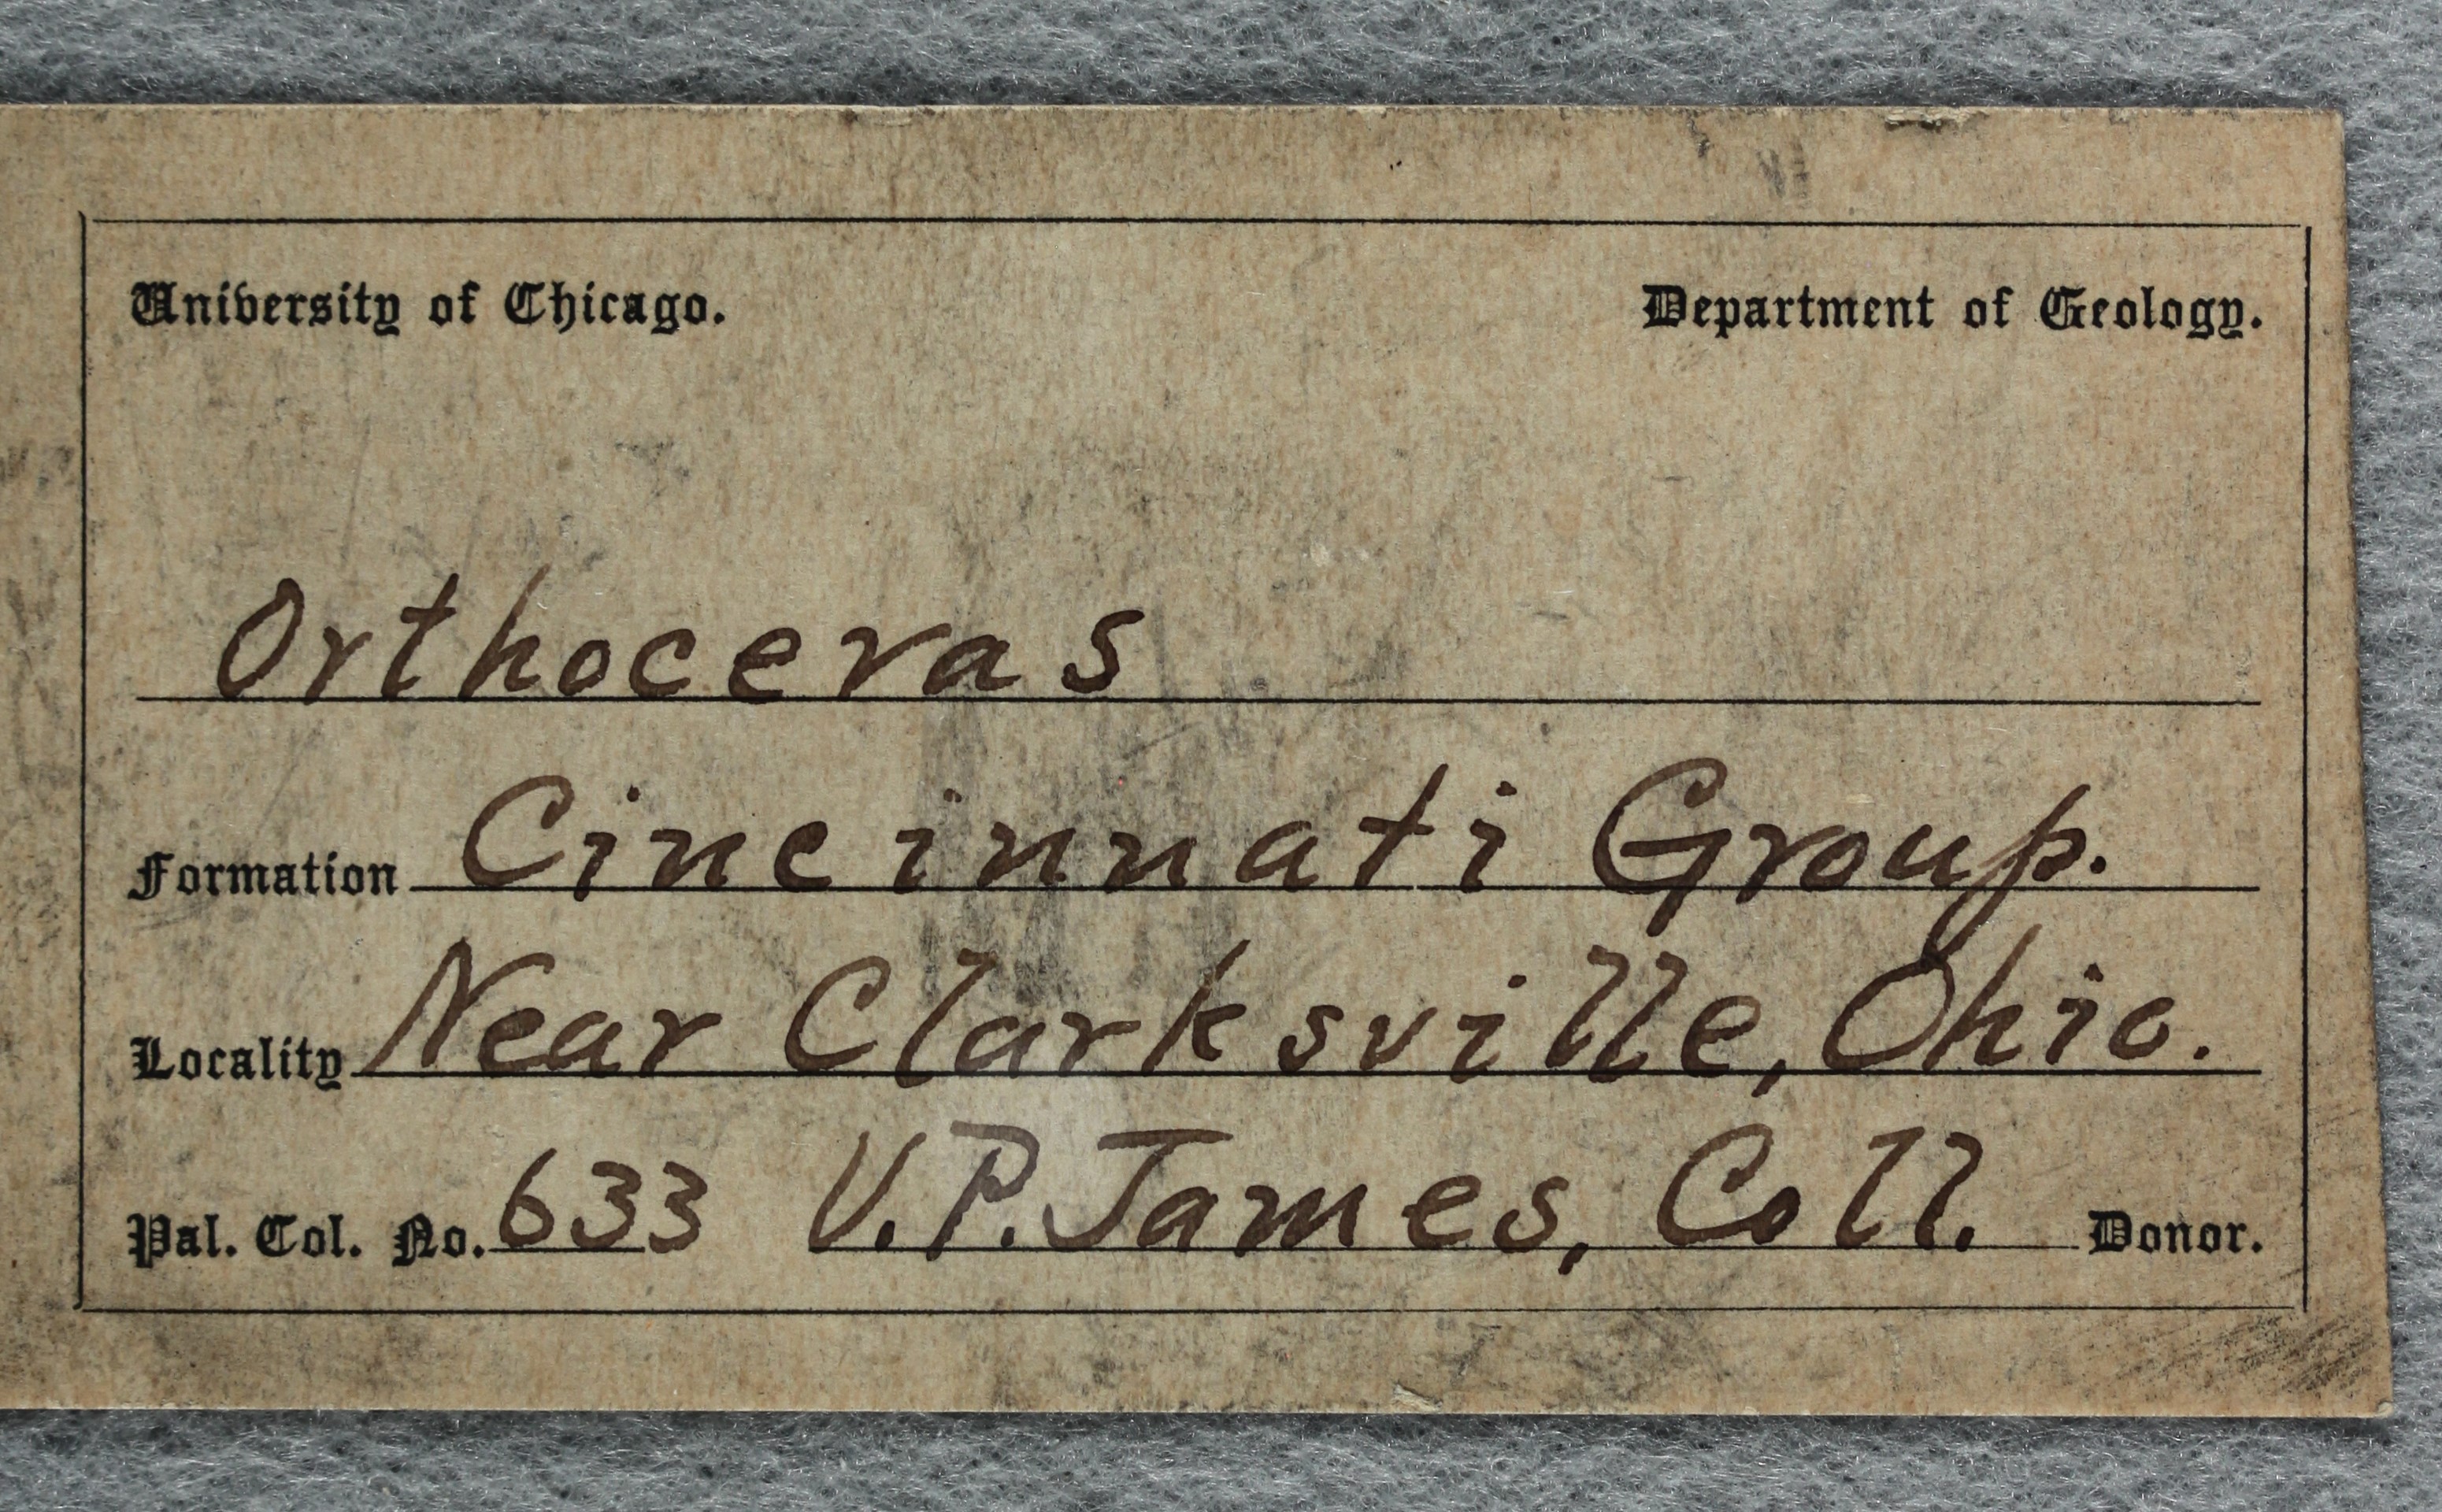 University of Chicago. Department of Geology.
Orthoceras
Formation Cincinnati Group.
Locality Near Clarksville, Ohio.
Pal. Col. No. 633 V.P. James, Coll. Donor.